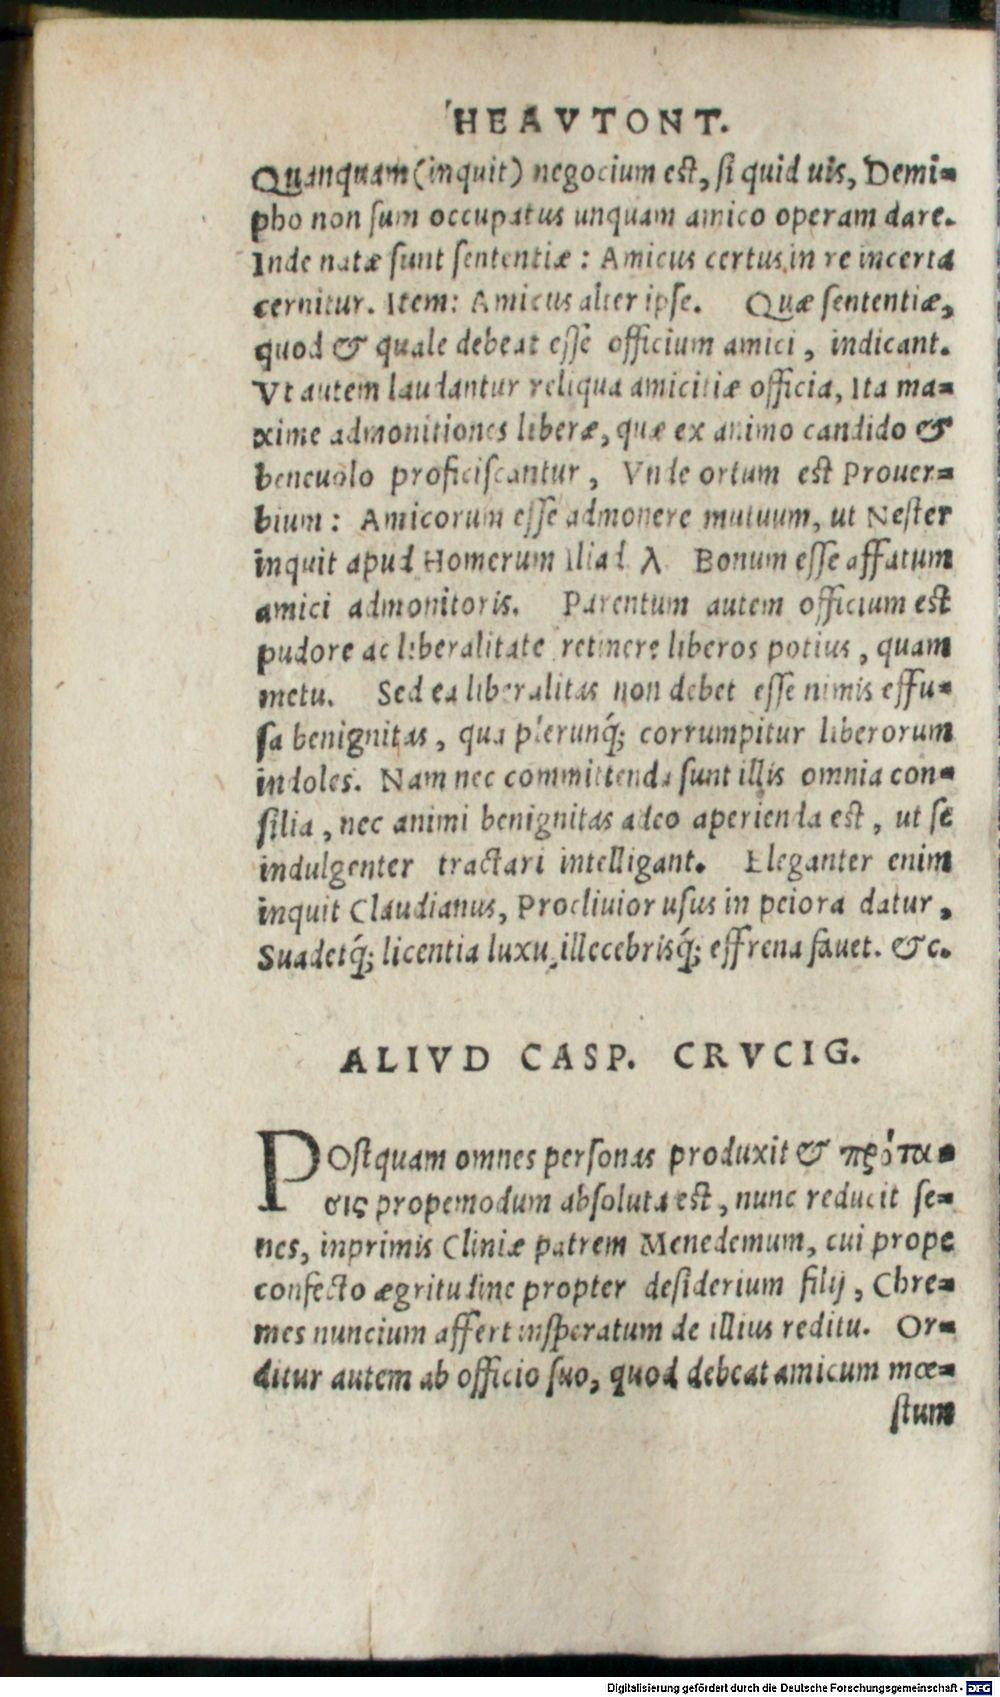 HEAVTONT.
Quanquam (inquit) negocium est, si quid uis, Demi-
pho non sum occupatus unquam amico operam dare.
Inde natæ sunt sententiæ : Amicus certus in re incerta
cernitur. Item: Amicus alter ipse. Quæ sententiæ,
quod & quale debeat esse officium amici, indicant.
Vt autem laudantur reliqua amicitiæ officia, Ita ma-
xime admonitiones liberæ, quæ ex animo candido &
beneuolo proficiscantur, Vnde ortum est Prouer-
bium : Amicorum esse admonere mutuum, ut Nester
inquit apud Homerum Iliad λ Bonum esse affatum
amici admonitoris. Parentum autem officium est
pudore ac liberalitate retinere liberos potius, quam
metu. Sed ea liberalitas non debet esse nimis effu-
sa benignitas, qua plerunq́; corrumpitur liberorum
indoles. Nam nec committenda sunt illis omnia con-
silia, nec animi benignitas adeo aperienda est, ut se
indulgenter tractari intelligant. Eleganter enim
inquit Claudianus, Procliuior usus in peiora datur,
Suadetq́; licentia luxu, illecebrisq́; effrena fauet. &c.
ALIVD CASP. CRVCIG.
POstquam omnes personas produxit & πρότα-
σις propemodum absoluta est, nunc reducit se-
nes, inprimis Cliniæ patrem Menedemum, cui prope
confecto ægritudine propter desiderium filij, Chre-
mes nuncium affert insperatum de illius reditu. Or-
ditur autem ab officio suo, quod debeat amicum mœ-
stum
Digitalisierung gefördert durch die Deutsche Forschungsgemeinschaft - DFG